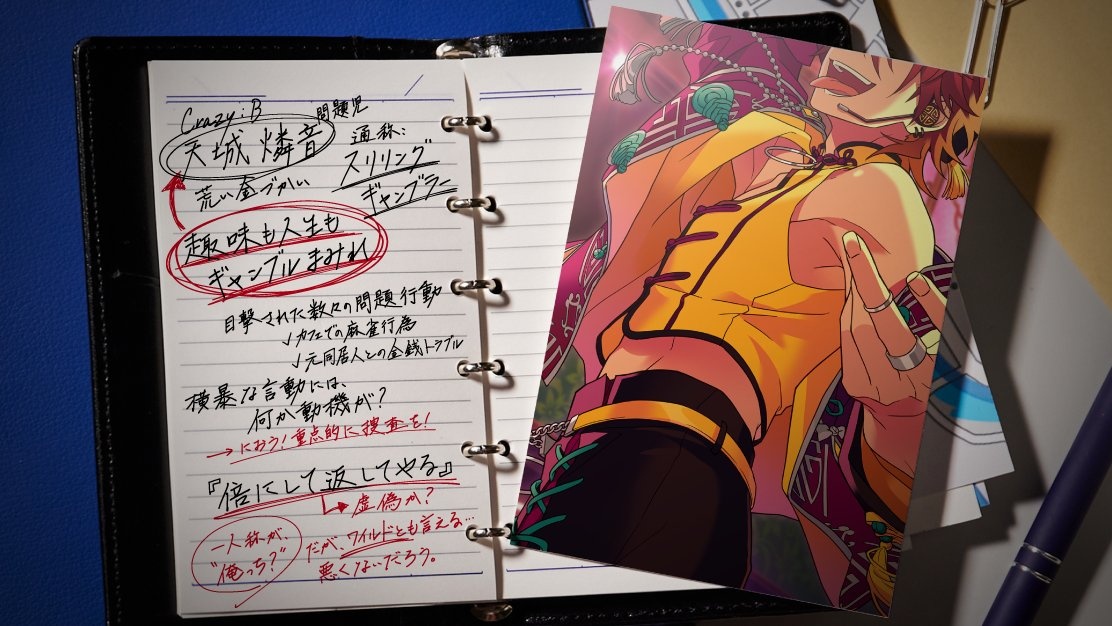 Crazy:B
問題児
天城 燐音
通称:
スリリング
ギャンブラー
荒い金づかい
趣味も人生も
ギャンブルまみれ
目撃された数々の問題行動
✓カフェでの麻雀行為
✓元同居人との金銭トラブル
横暴な言動には、
何か動機が?
→におう!重点的に捜査を!
『倍にして返してやる』
虚偽か?
一人称が、
"俺っち?"
だが、ワイルドとも言える…
悪くないだろう。